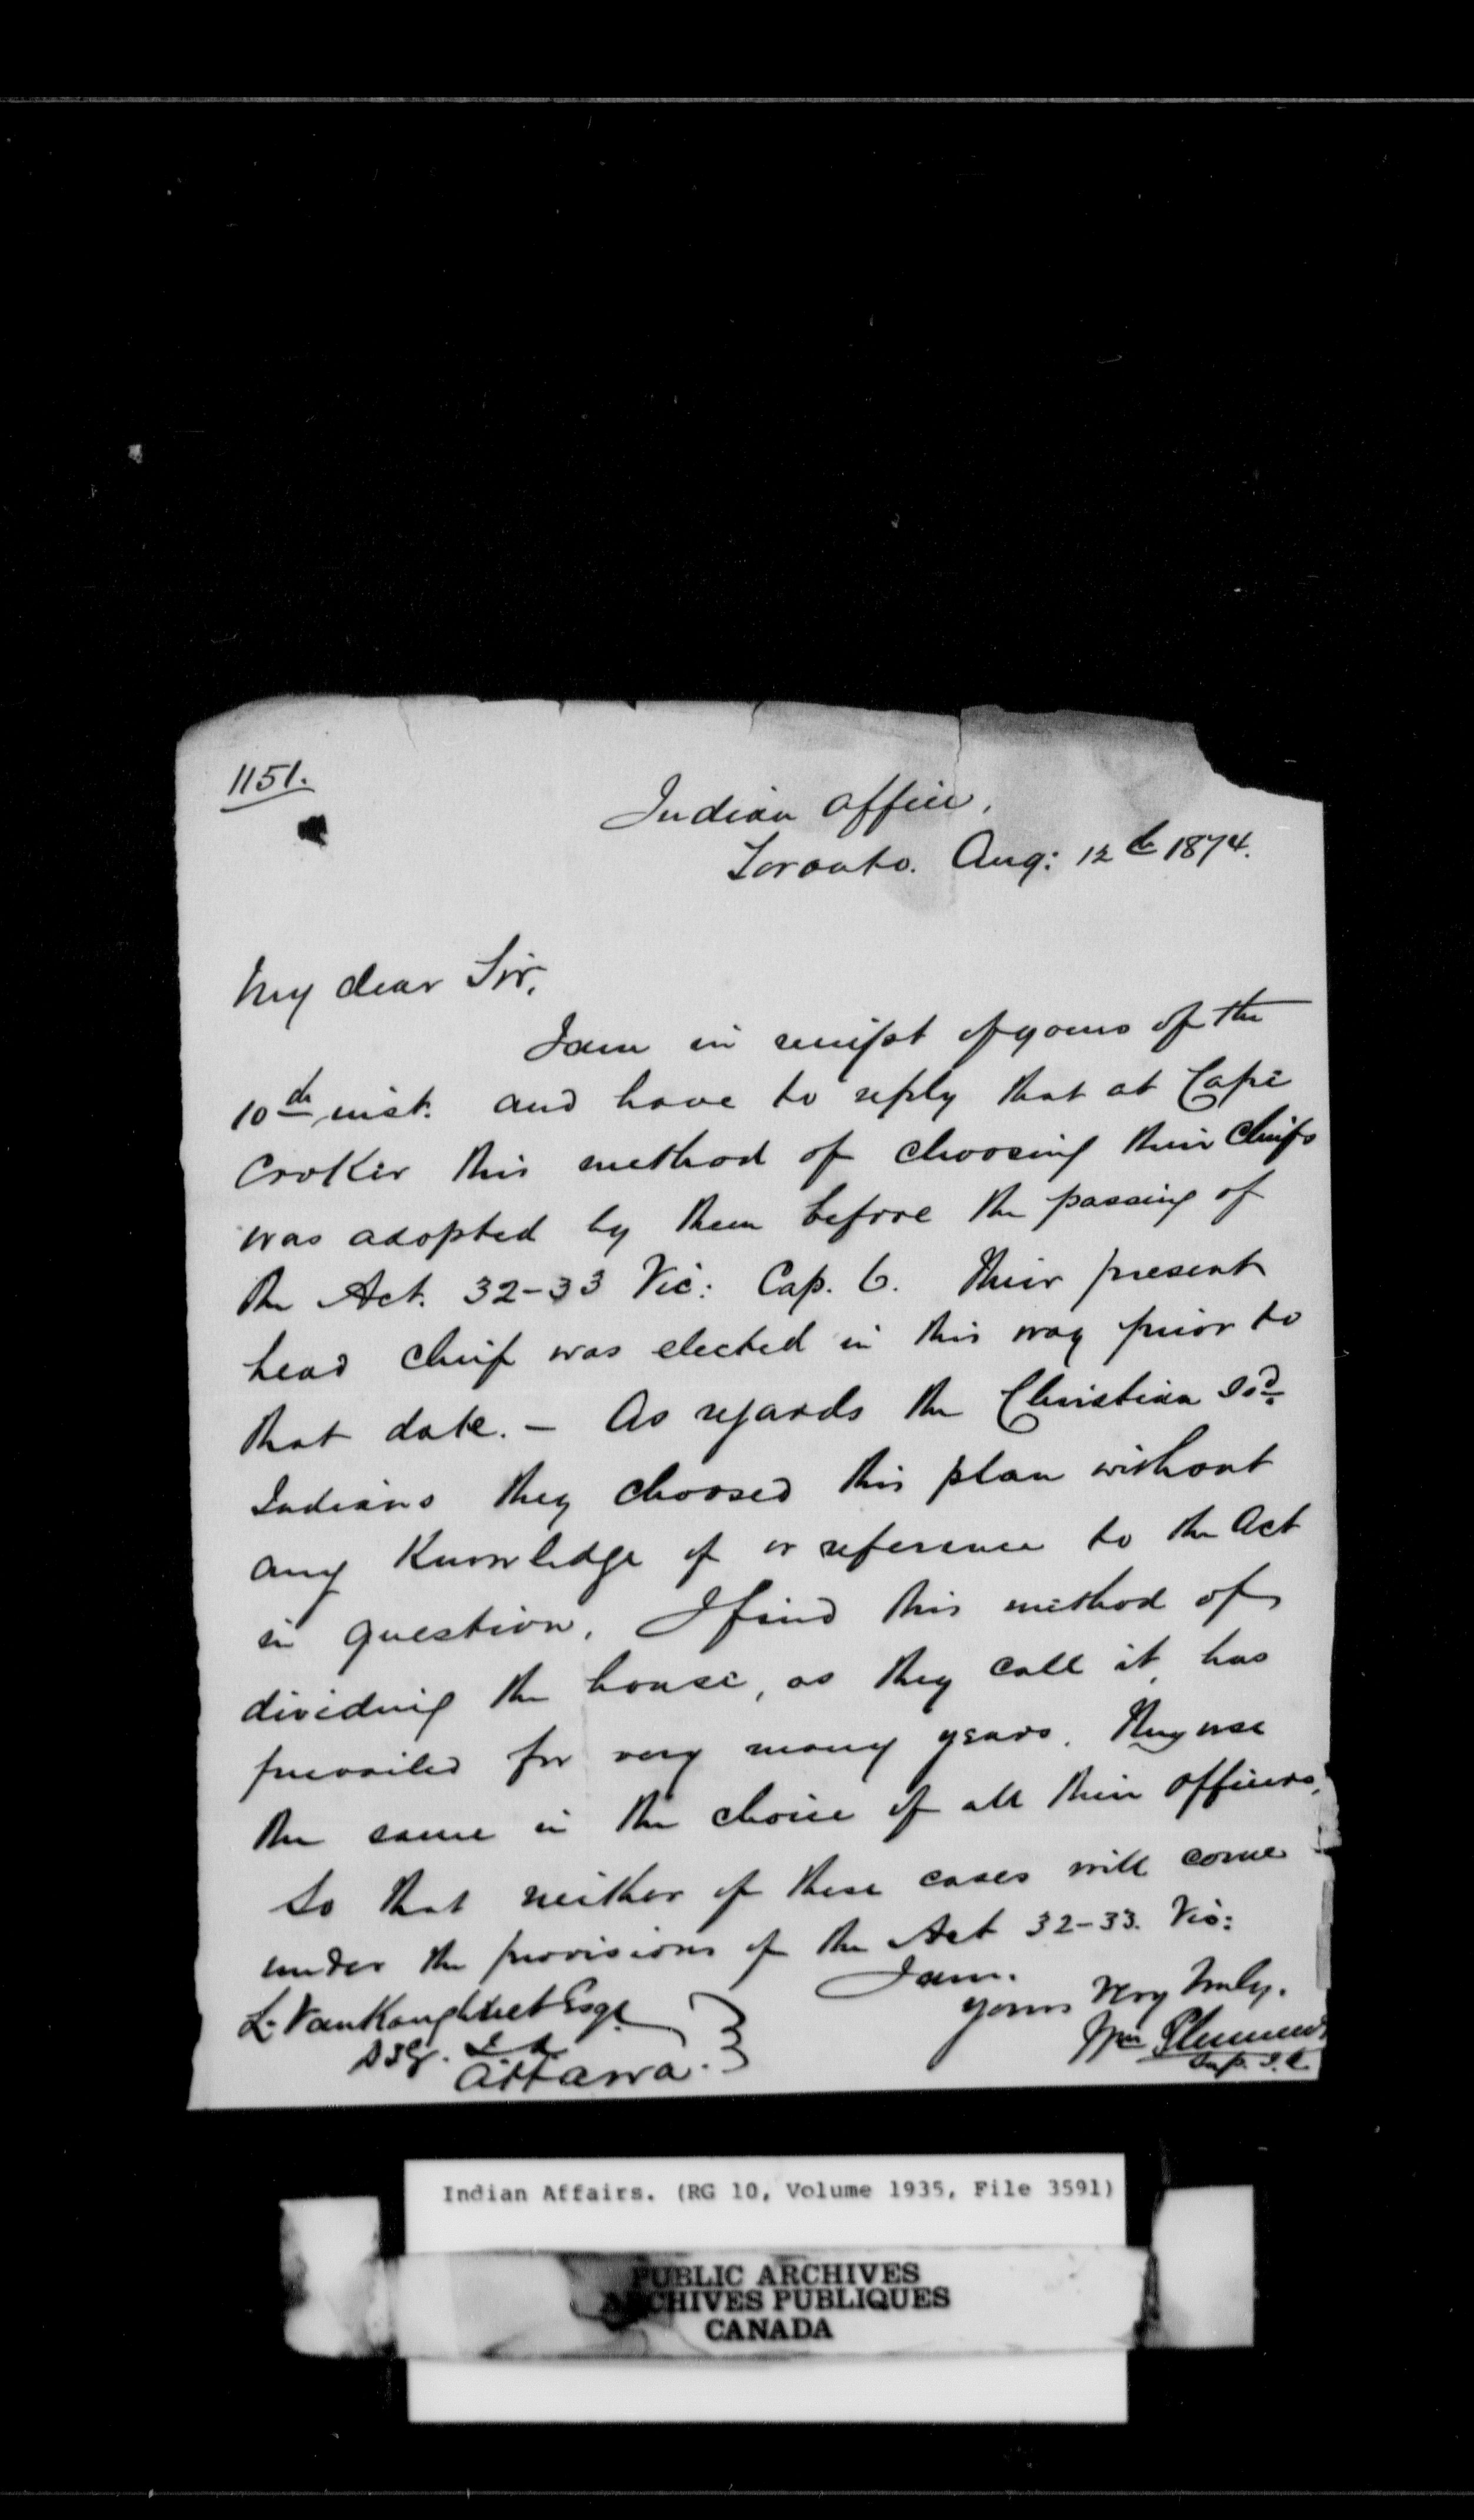 1151.
Indian Office.
Toronto. Aug: 12th 1874.
My dear Sir,
I am in receipt of yours of the
10th inst. and have to reply that at Cape
Croker this method of choosing their Chiefs
was adopted by them before the passing of
the Act. 32-33 Vic: Cap. 6. Their present
head chief was elected in this way prior to
that date. — As regards the Christian Isd.
Indians they choosed this plan without
any Knowledge of or reference to the Act
in question. I find this method of
dividing the house, as they call it, has
prevailed for very many years. They use
the same in the choice of all their officers,
So that neither of these cases will come
under the provisions of the Act 32-33. Vic:
I am.
yours Very truly.
Wm Plummer
Sup. I. A.
L. VanKoughnet Esqr
D S G. I A
Ottawa.
Indian Affairs. (RG 10, Volume 1935, File 3591)
PUBLIC ARCHIVES
ARCHIVES PUBLIQUES
CANADA